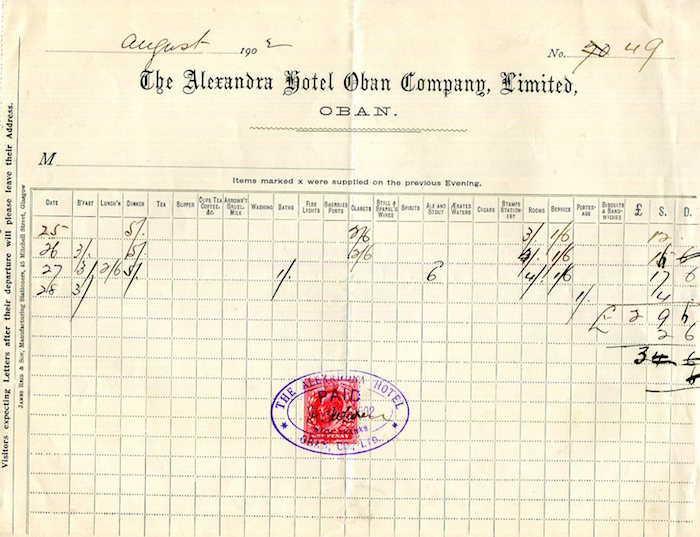 august 1902
No. 70 49
The Alexandra Hotel Oban Company, Limited,
OBAN.
M
Items marked x were supplied on the previous Evening.
DATE B'FAST LUNCH'N DINNER TEA SUPPER CUPS TEA COFFEE, &c. ARROWR'T GRUEL MILK WASHING BATHS FIRE LIGHTS SHERRIES PORTS CLARETS STILL & SPARK'G WINES SPIRITS ALE AND STOUT ÆRATED WATERS CIGARS STAMPS STATION-ERY ROOMS SERVICE PORTER-AGE BISCUITS & SAND-WICHES £ S. D.
25 5/. 2/6 3/ 1/6 12
26 3/. 5/. 2/6 4/. 1/6 6
27 3/ 2/6 5/. 1/. 6 4/. 1/6 17 6
28 3/ 1/. 4
£ 2 9
2 6
3
THE ALEXANDRA HOTEL
PAID
1902
With thanks
OBAN, CO., LTD.
ONE PENNY
Visitors expecting Letters after their departure will please leave their Address.
JAMES REID & SON, Manufacturing Stationers, 45 Mitchell Street, Glasgow